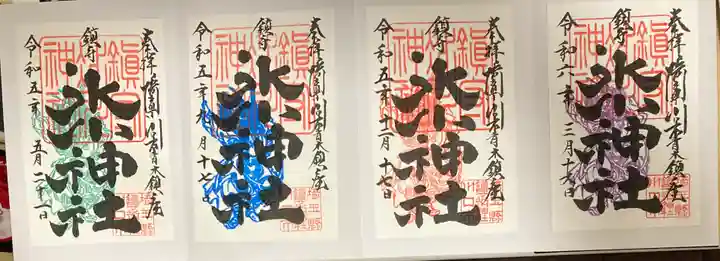 奉拝 埼玉県川口青木鎮座
鎮守
氷川神社
令和五年五月二十一日
奉拝 埼玉県川口青木鎮座
鎮守
氷川神社
令和五年九月十七日
奉拝 埼玉県川口青木鎮座
鎮守
氷川神社
令和五年十二月十七日
奉拝 埼玉県川口青木鎮座
鎮守
氷川神社
令和六年三月十七日